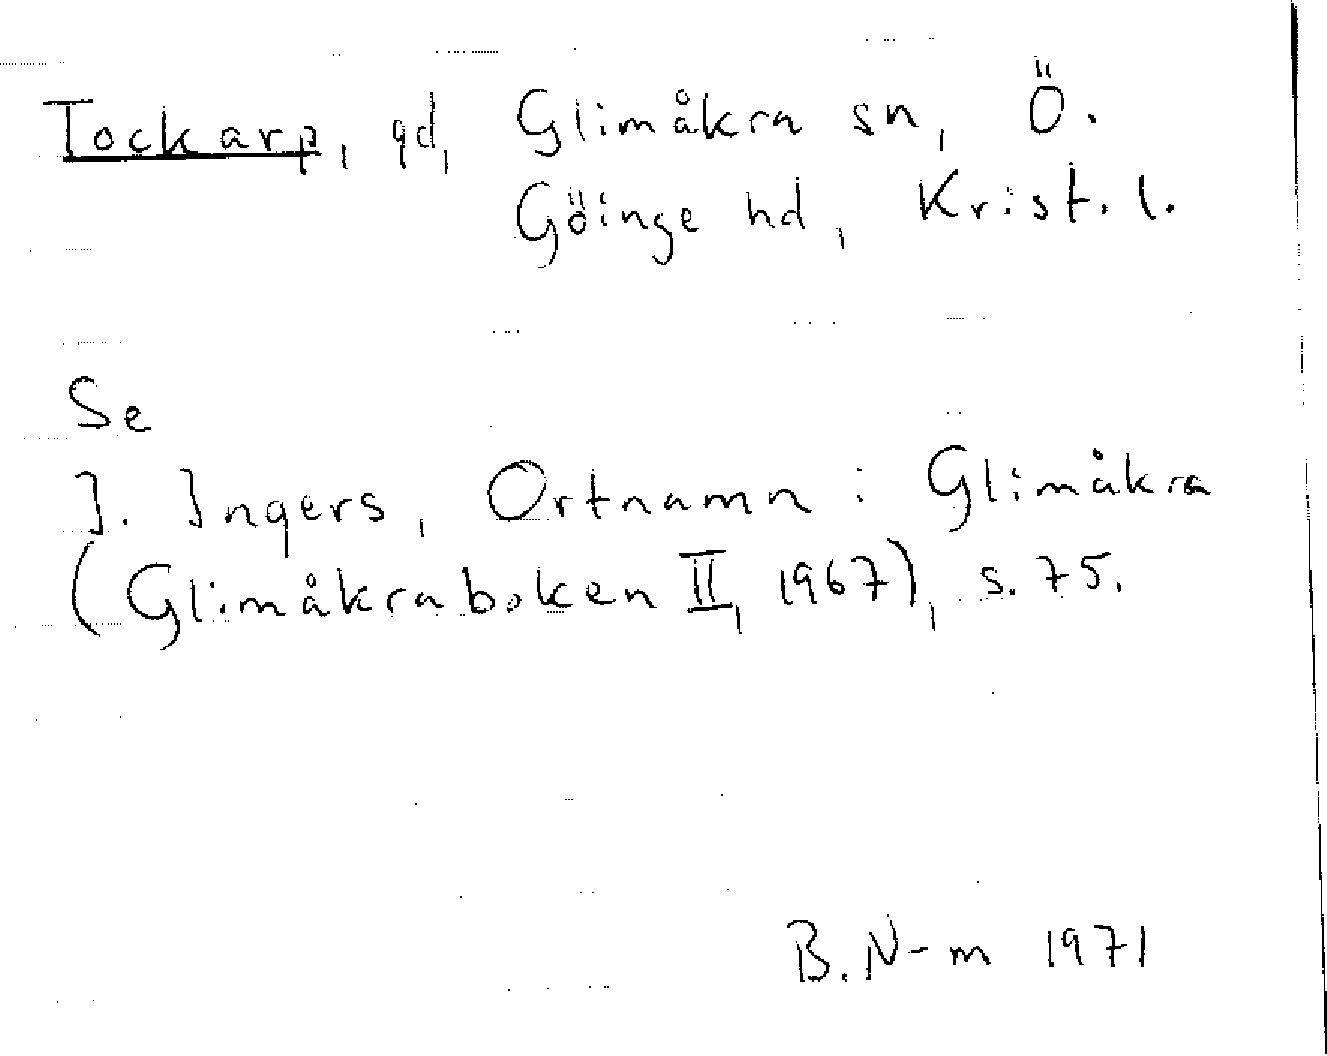 Tockarp, gd, Glimåkra sn, Ö.
Göinge hd, Krist. l.
Se
I. Ingers, Ortnamn i Glimåkra
(Glimåkraboken II, 1967), s. 75.
B. N-m 1971